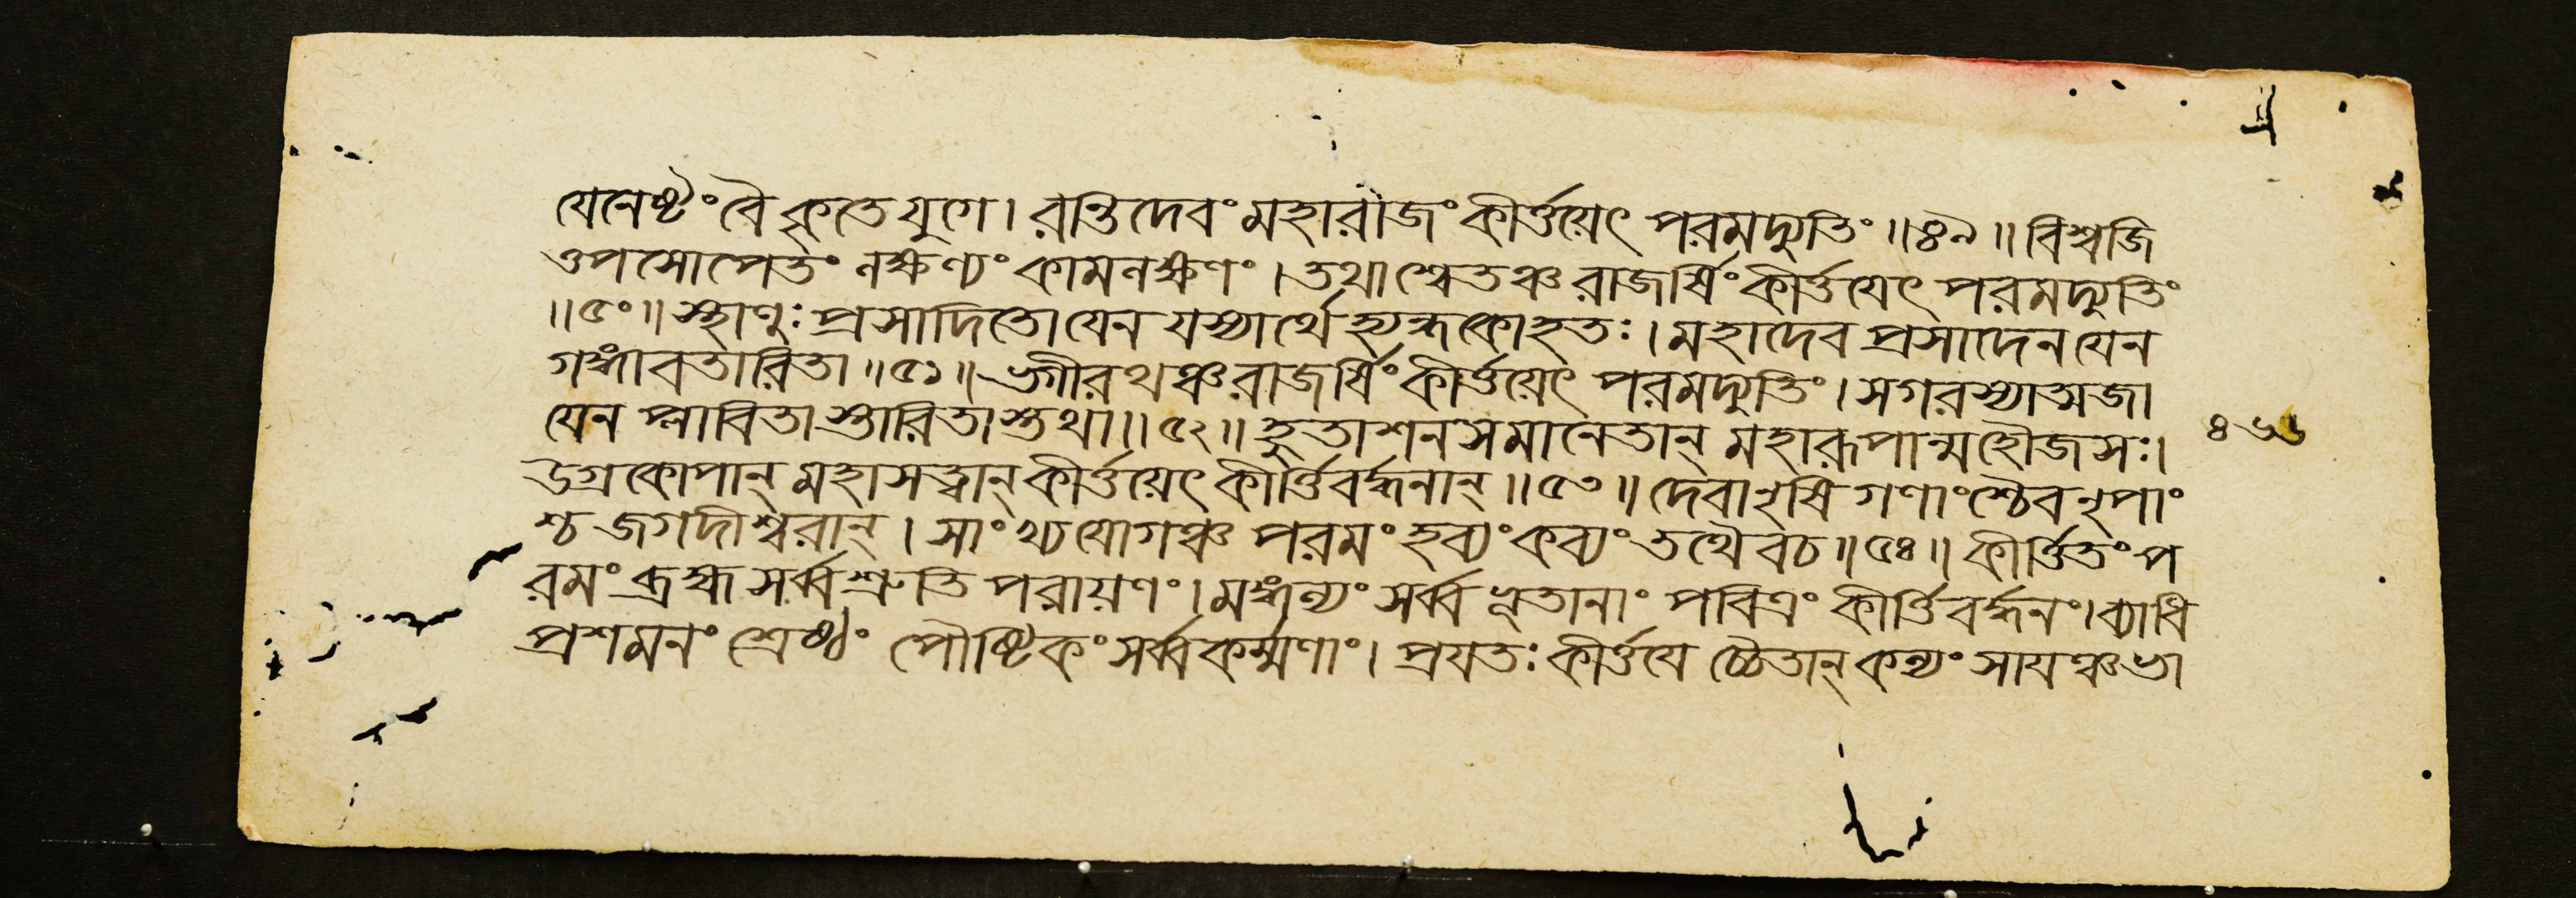 যেনেষ্টং বৈ কৃতে যুগে। রন্তিদেবং মহারাজং কীর্ত্তয়েৎ পরমদ্যুতিং ॥৪৯॥ বিশ্বজি
ত্তপসোপেতং লক্ষণ্যং কামলক্ষণং। তথা শ্বেতঞ্চ রাজর্ষিং কীর্ত্তয়েৎ পরমদ্যুতিং
॥৫০॥ স্থাণুঃ প্রসাদিতো যেন যস্যার্থে হ্যন্ধকো হতঃ। মহাদেব প্রসাদেন যেন
গঙ্গাবতারিতা ॥৫১॥ ভগীরথঞ্চ রাজর্ষিং কীর্ত্তয়েৎ পরমদ্যুতিং। সগরস্যাত্মজা
যেন প্লাবিতাস্তারিতাস্তথা॥৫২॥ হুতাশনসমানেতান্ মহারূপান্মহৌজসঃ।
উগ্রকোপান্ মহাসত্ত্বান্ কীর্ত্তয়েৎ কীর্ত্তিবর্দ্ধনান্ ॥৫৩॥ দেবাঋষি গণাংশ্চৈব নৃপাং
শ্চ জগদীশ্বরান্। সাংখ্য যোগঞ্চ পরমং হব্যং কব্যং তথৈবচ ॥৫৪॥ কীর্ত্তিতং প
রমং ব্রহ্ম সর্ব্বশ্রুতি পরায়ণং। মঙ্গল্যং সর্ব্বভূতানাং পবিত্রং কীর্ত্তিবর্দ্ধনং। ব্যাধি
প্রশমনং শ্রেষ্ঠং পৌষ্টিকং সর্ব্বকর্ম্মণাং। প্রযতঃ কীর্ত্তয়েচ্চৈতান্ কল্যং সায়ঞ্চ ভা